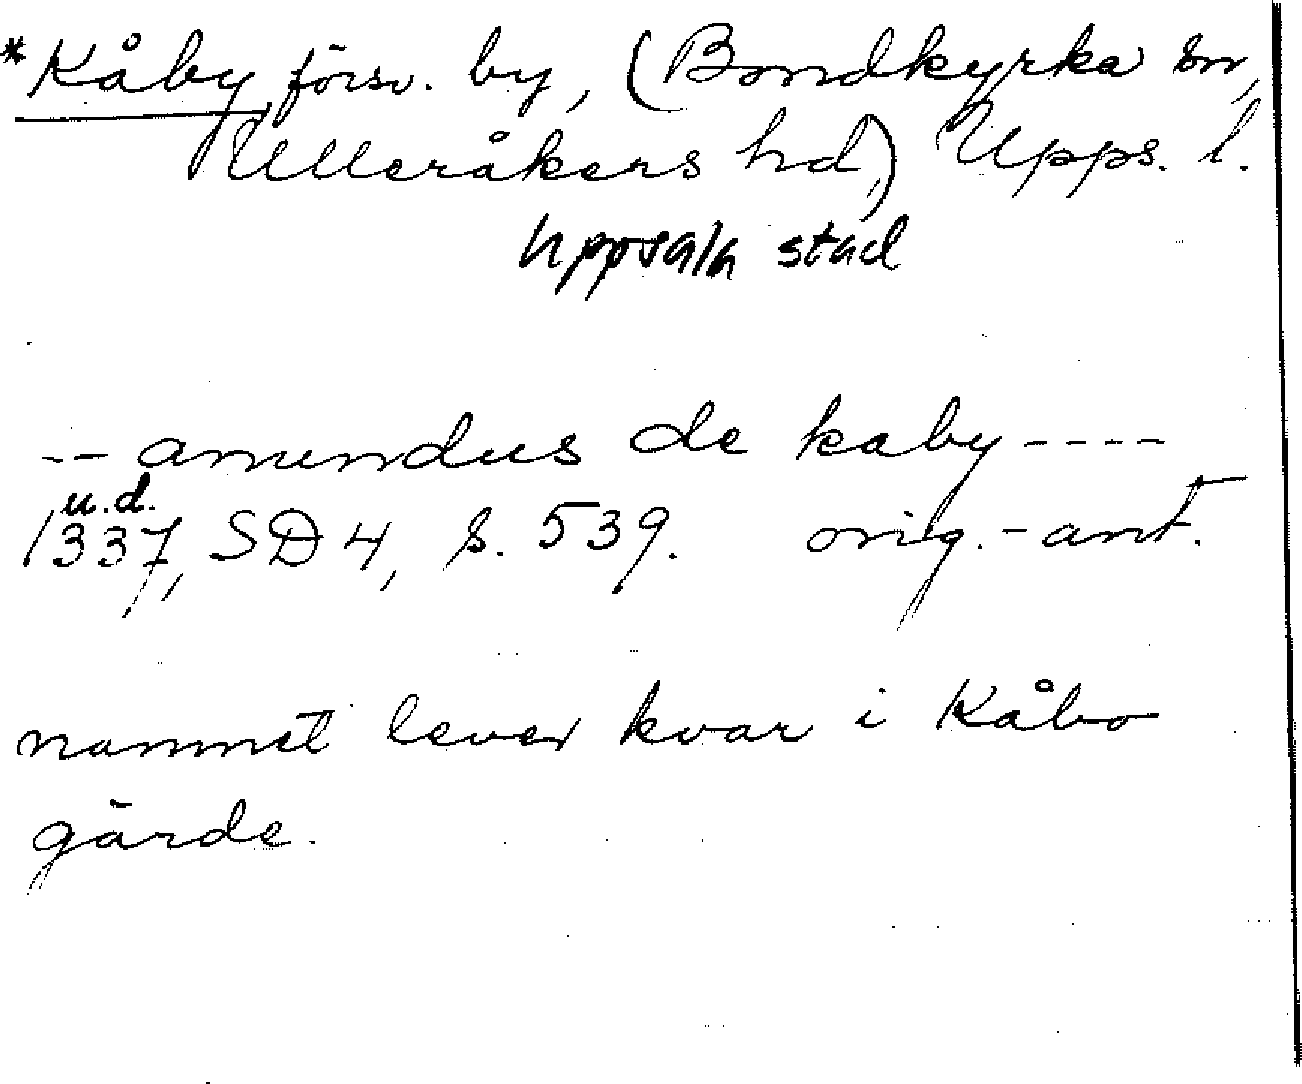 *Kåby, försv. by, (Bondkyrka sn,
Ulleråkers hd,) Upps. l.
Uppsala stad
-- amundus de kaby ----
u.d.
1337, SD 4, s. 539. orig.-ant.
namnet lever kvar i Kåbo
gärde.